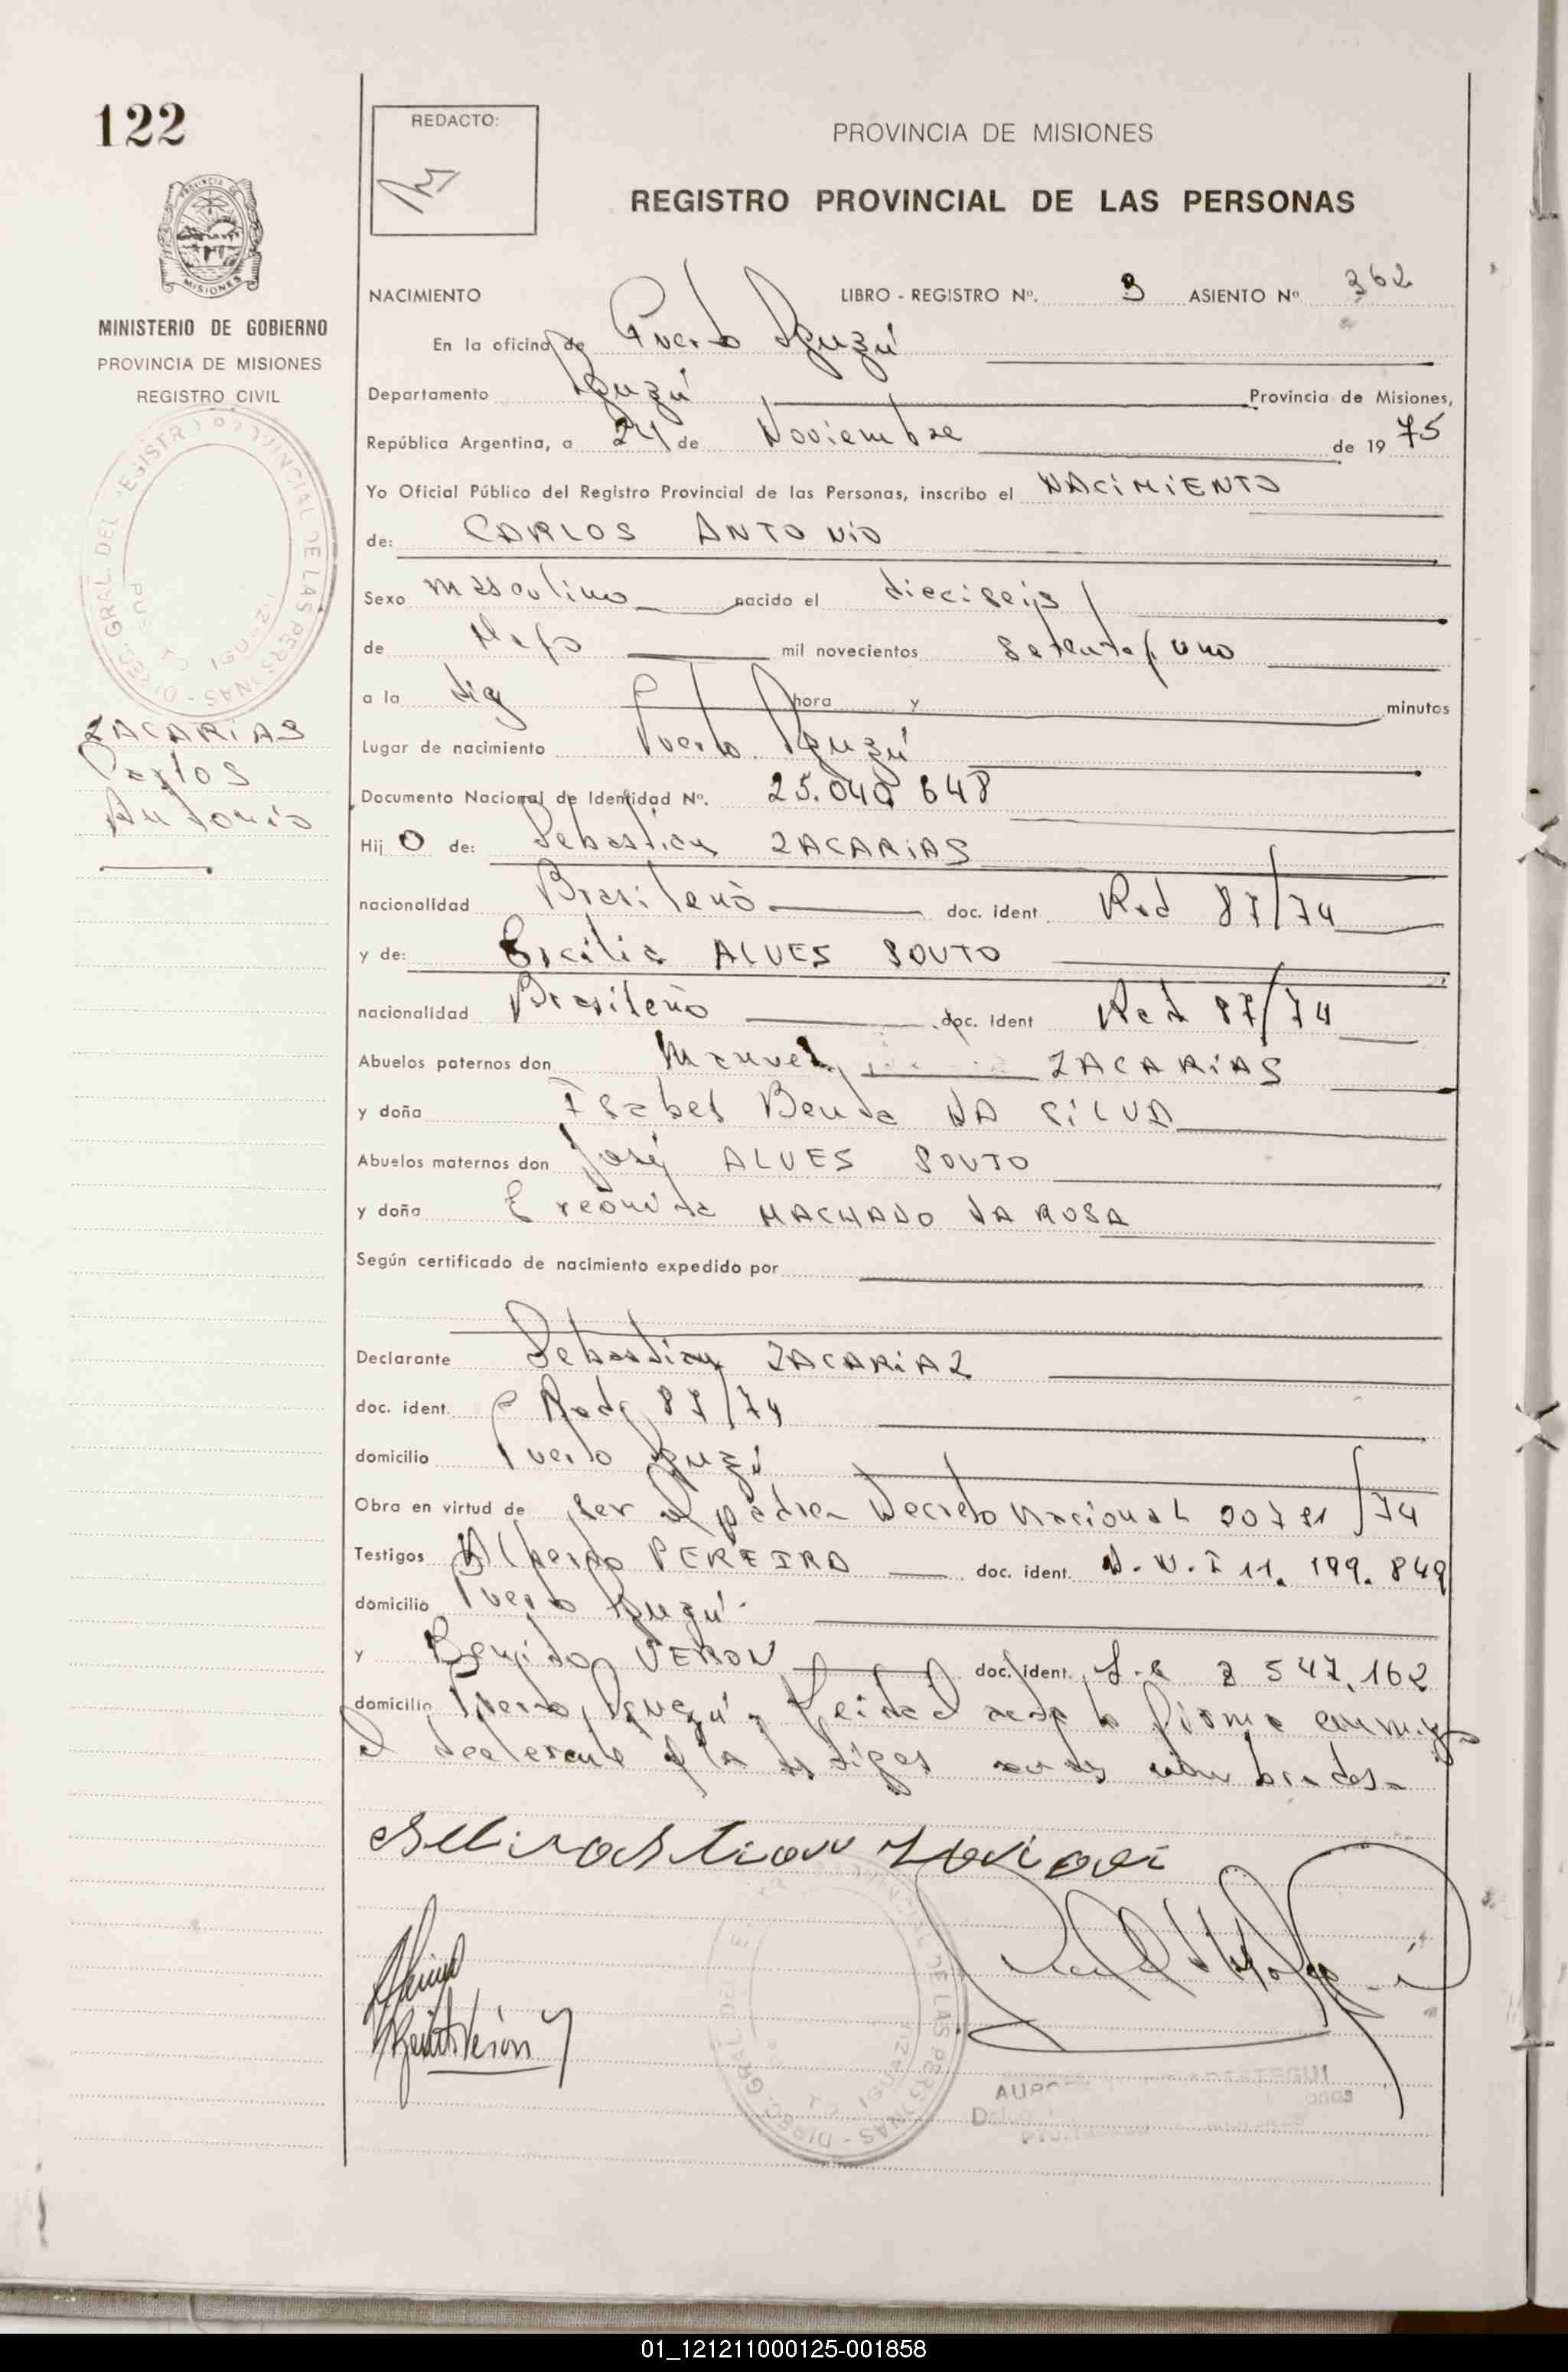 122
REDACTO:
PROVINCIA DE MISIONES
REGISTRO PROVINCIAL DE LAS PERSONAS
MISIONES
MINISTERIO DE GOBIERNO
PROVINCIA DE MISIONES
REGISTRO CIVIL
ZACARIAS
Carlos
Antonio
NACIMIENTO LIBRO - REGISTRO Nº. 3 ASIENTO Nº 362
En la oficina de Puerto Iguazú
Departamento Iguazú Provincia de Misiones,
República Argentina, a 24 de Noviembre de 1975
Yo Oficial Público del Registro Provincial de las Personas, inscribo el NACIMIENTO
de: CARLOS ANTONIO
Sexo masculino nacido el dieciseis
de Mayo mil novecientos setenta y uno
a la hora y minutos
Lugar de nacimiento Puerto Iguazú
Documento Nacional de Identidad Nº. 25.040 648
Hij o de: Sebastian ZACARIAS
nacionalidad Brasileño doc. ident. Rad 87/74
y de: Ercilia ALVES SOUTO
nacionalidad Brasileño doc. ident Rad 87/74
Abuelos paternos don Manuel ZACARIAS
y doña Isabel DA SILVA
Abuelos maternos don José ALVES SOUTO
y doña MACHADO DA ROSA
Según certificado de nacimiento expedido por
Declarante Sebastian ZACARIAZ
doc. ident. 87/74
domicilio Puerto Iguazú
Obra en virtud de ser el padre Decreto Nacional /74
Testigos Alberto PEREIRA doc. ident. D.N.I 11.199.849
domicilio Puerto Iguazú
y Benito VERON doc. ident. 3 547.162
domicilio Puerto Iguazú Leida el acta la firma conmigo
el declarante y los testigos nombrados